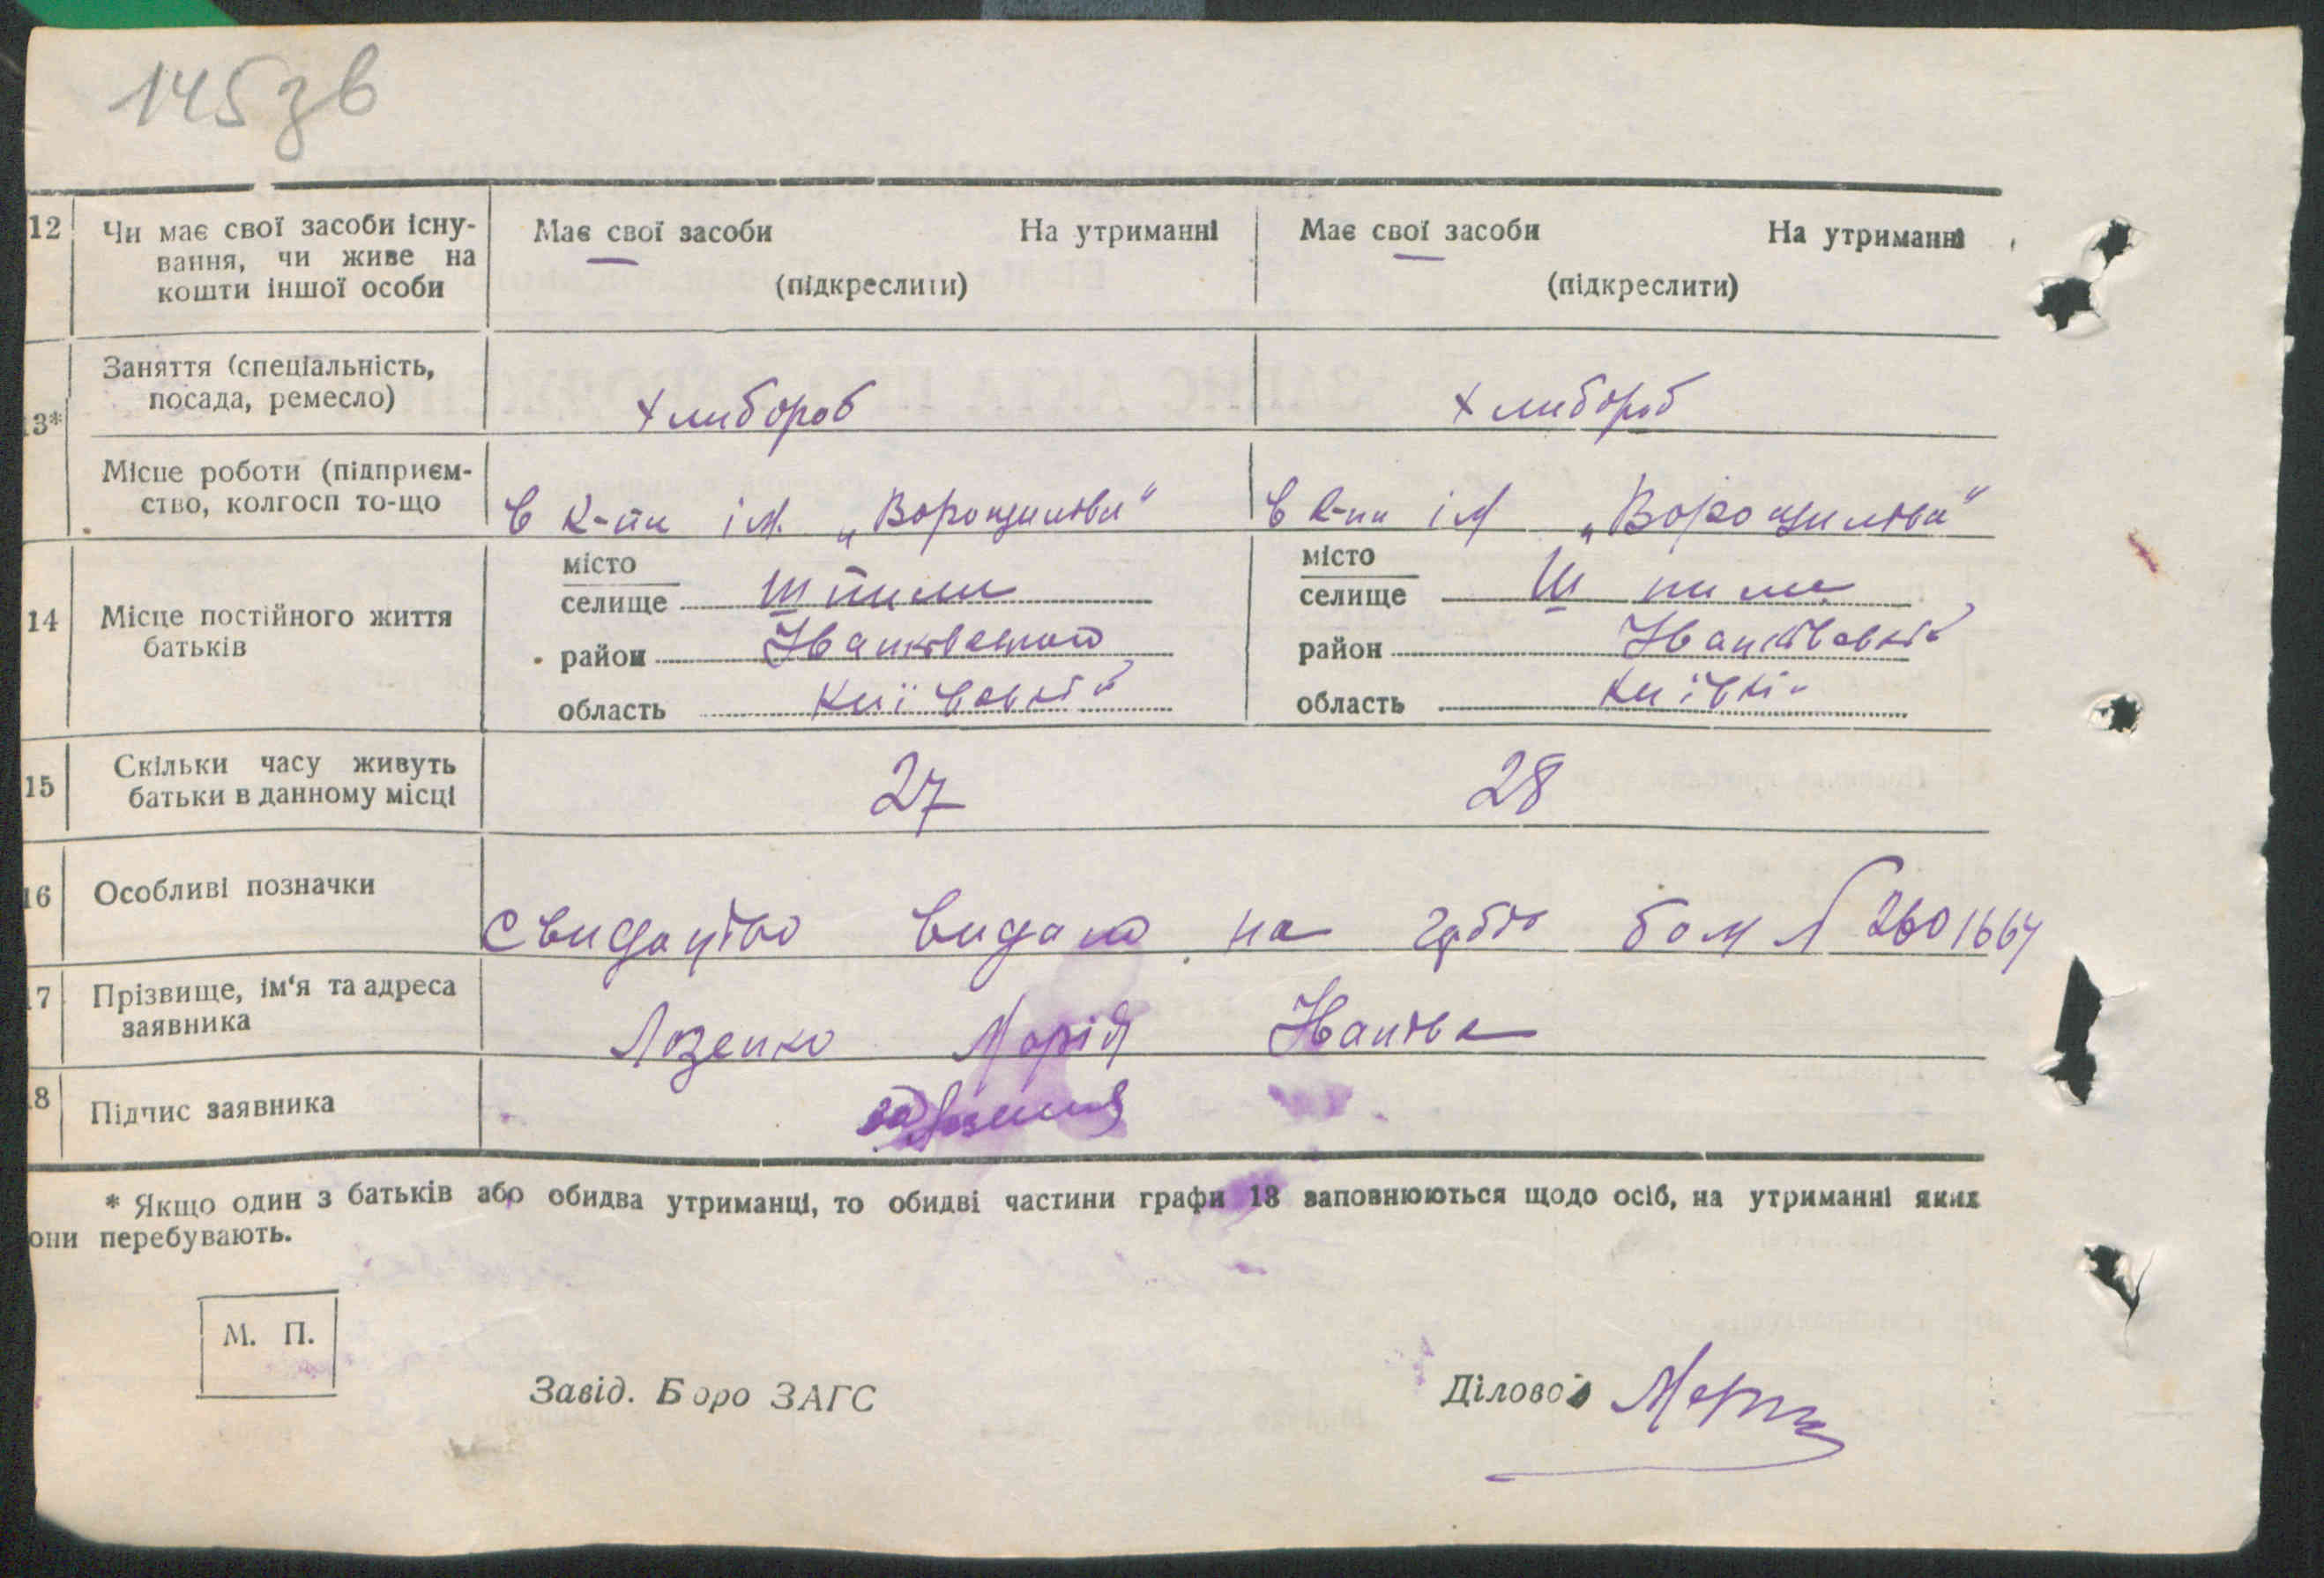 145зв
12 Чи має свої засоби існу- Має свої засоби На утриманні Має свої засоби На утриманні
вання, чи живе на
кошти іншої особи (підкреслити) (підкреслити)
Заняття (спеціальність,
посада, ремесло) Хлибороб Хлибороб
13*
Місце роботи (підприєм-
ство, колгосп то-що в к-пи ім. „Ворошилова" в к-пи ім „Ворошилова"
місто місто
селище Шпили селище Шпили
14 Місце постійного життя
батьків район Иванковський район Иванковській
область Киівській область Киівкій
15 Скільки часу живуть
батьки в данному місці 27 28
16 Особливі позначки Свидоцтво видано на бом № 2601664
17 Прізвище, ім'я та адреса
заявника Лозенко Марія Ивановна
18 Підпис заявника за
* Якщо один з батьків або обидва утриманці, то обидві частини графи 13 заповнюються щодо осіб, на утриманні яких
они перебувають.
М. П.
Завід. Бюро ЗАГС Діловод